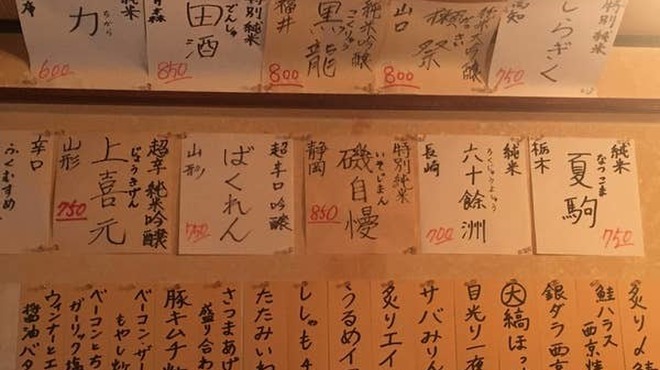 特別純米
しらぎく
高知
750
純米大吟醸
獺祭
山口
800
純米吟醸
こくりゅう
黒龍
福井
800
特別純米
でんしゅ
田酒
青森
850
純米
ちから
力
600
純米
なつごま
夏駒
栃木
750
純米
ろくじゅうよしゅう
六十餘洲
長崎
700
特別純米
いそじまん
磯自慢
静岡
850
超辛口 吟醸
ばくれん
山形
750
超辛 純米吟醸
じょうきげん
上喜元
山形
750
ふくむすめ
辛口
炙り〆鯖
鮭ハラス
西京焼
銀ダラ西京
大縞ほっ
目光り一夜
サバみりん
炙りエイ
うるめイ
ししゃも
たたみいわ
さつまあげ
盛り合わ
豚キムチ炒
ベーコン・ザー
もやし炒
ベーコンとち
ガーリック塩
ウィンナーとエ
醤油バタ